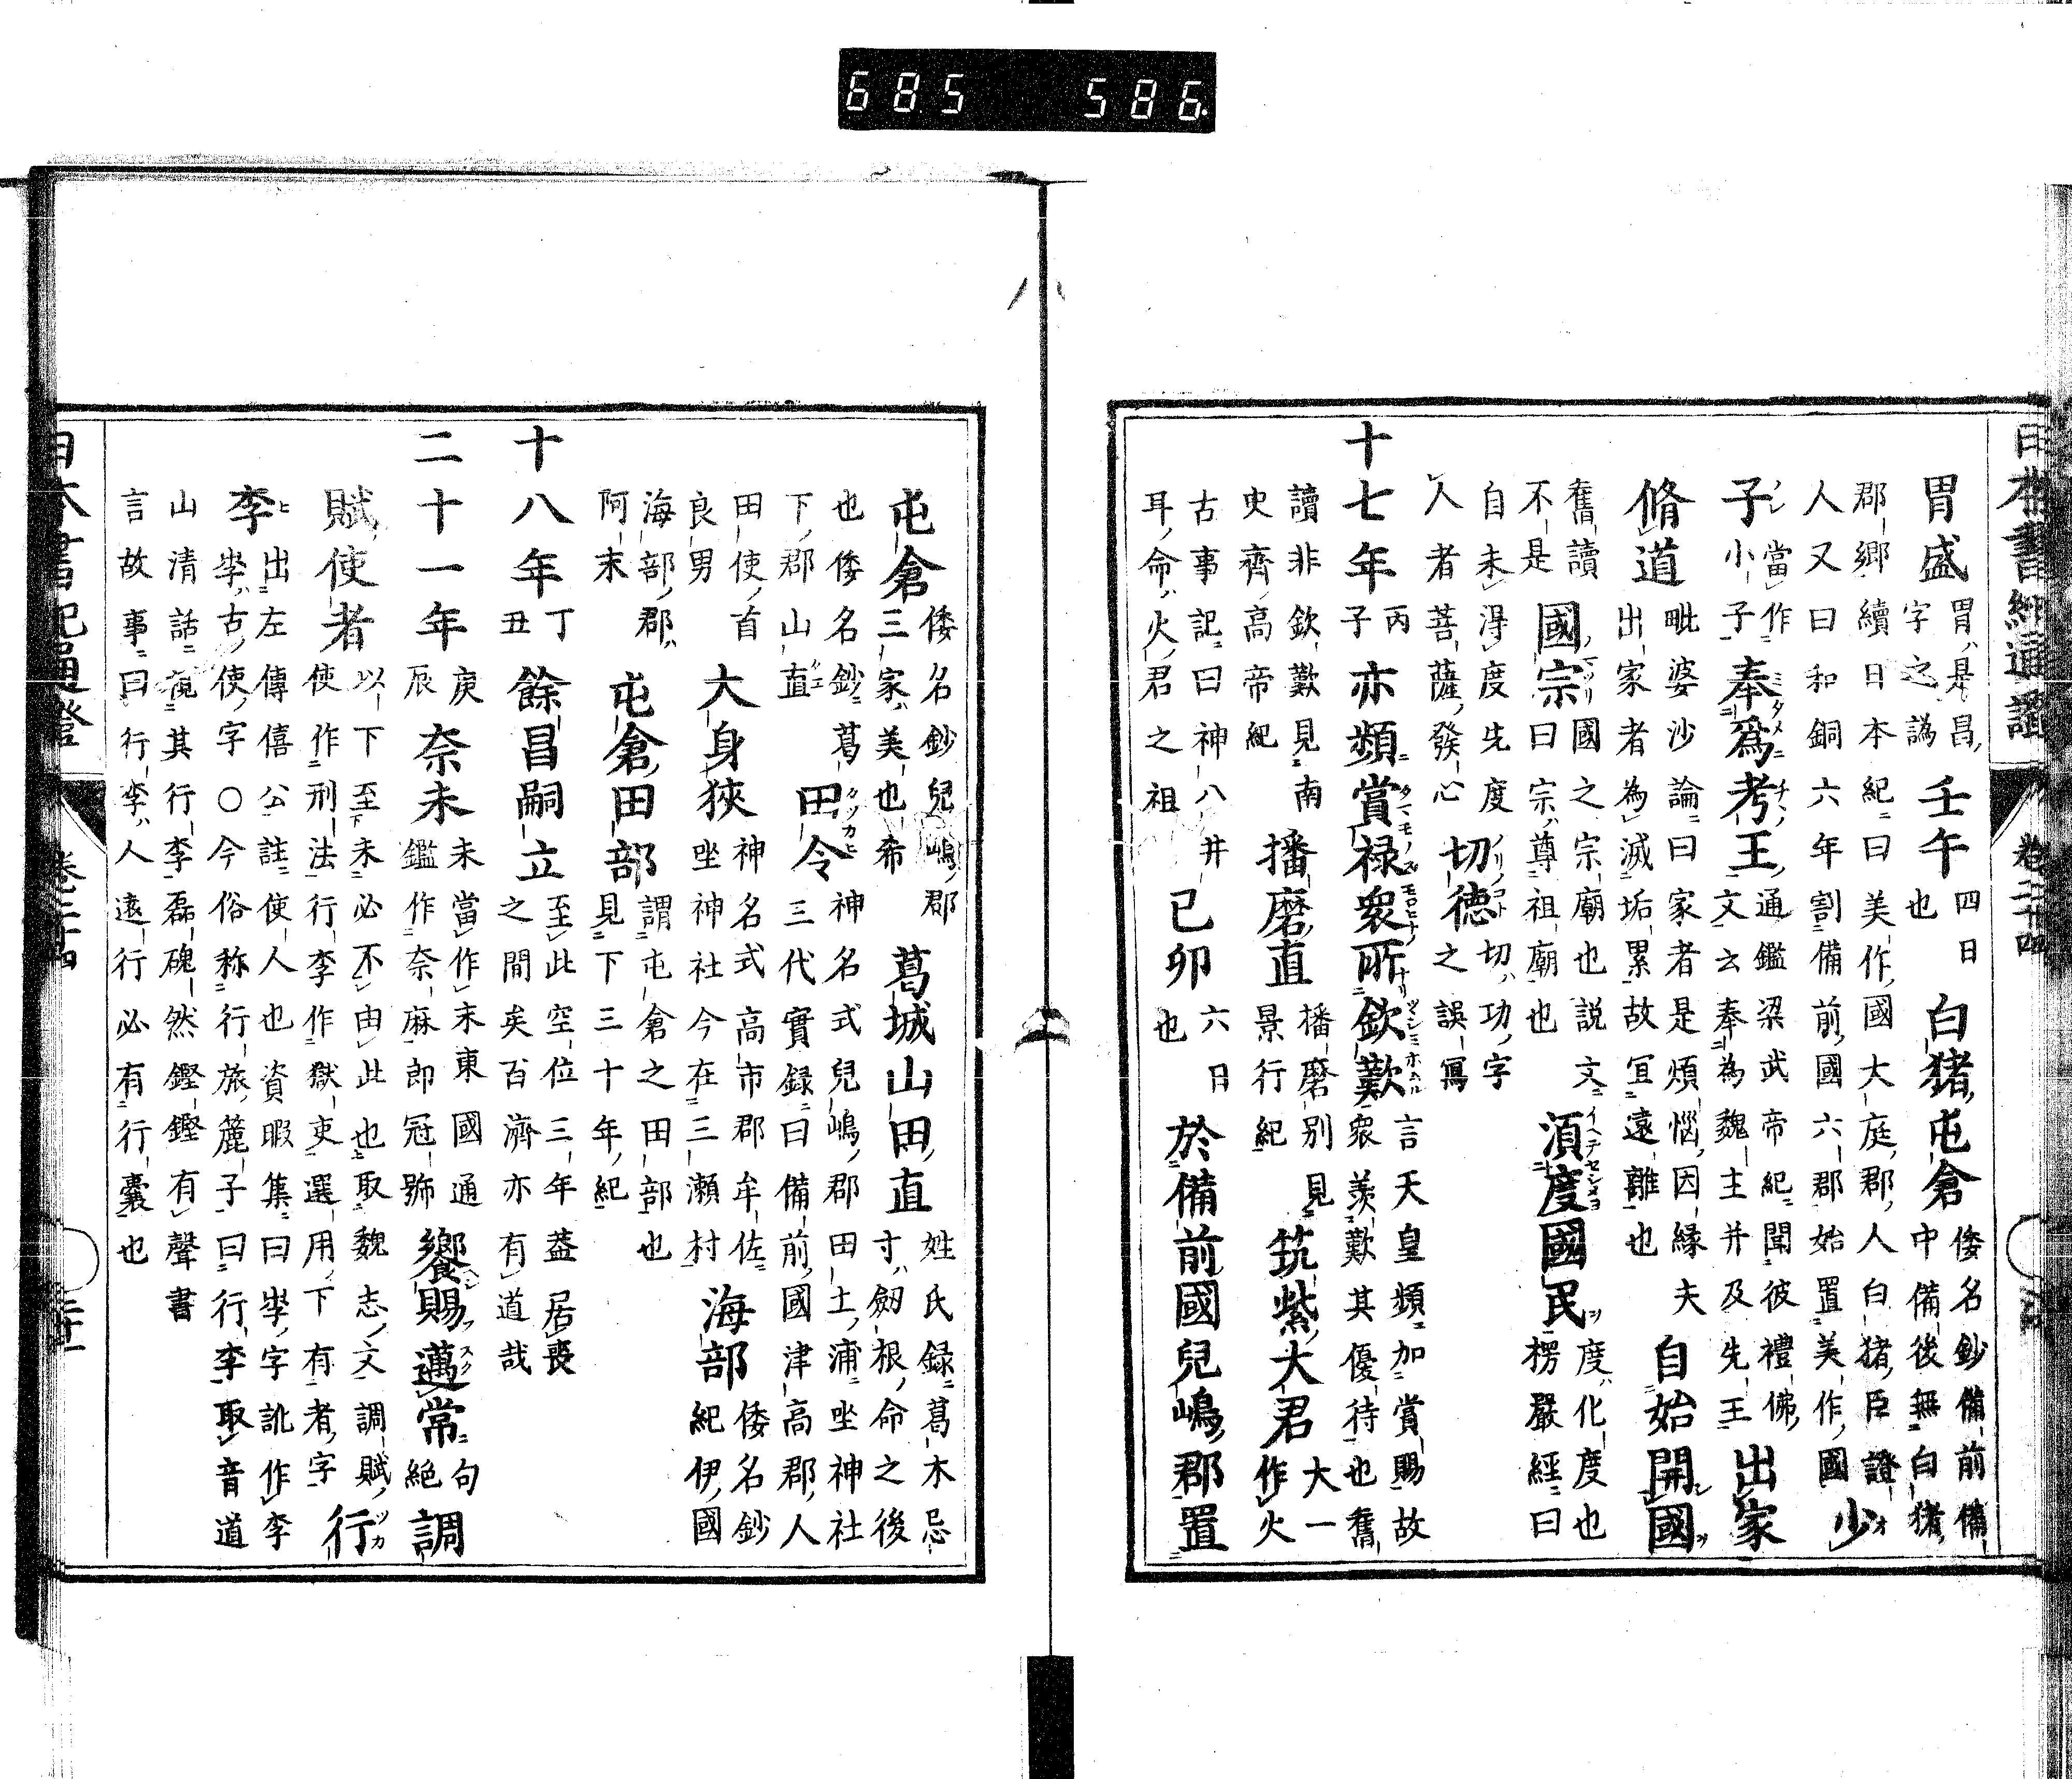 日本書紀通證 卷二十四
胃盛胃ハ是昌ノ
字之譌壬午四日
也白猪ノ屯倉倭名鈔備前備
中備後無白猪
郡郷續日本紀曰美作國大庭郡人白猪臣證
人又曰和銅六年割備前國六郡始置美作國少
子當作
小子奉爲考王通鑑梁武帝紀聞彼禮佛
文云奉為魏主并及先王出家
脩道毗婆沙論曰家者是煩惱因縁夫
出家者為滅垢累故冝遠離也自始開國
奮讀
不是國宗國之宗廟也説文
曰宗ハ尊祖廟也須度國民度ハ化度也
楞嚴經曰
自未得度先度
人者菩薩發心切德切ハ功ノ字
之誤寫
十七年丙
子亦頻賞禄衆所欽歎言天皇頻加賞賜故
衆羨歎其優待也奮
讀非欽歎見南
史齊高帝紀播磨直播磨別見
景行紀筑紫大君大一
作火
古事記曰神八井
耳命ハ火君之祖已卯六日
也於備前國兒嶋郡置
屯倉倭名鈔兒嶋郡
三家ハ美也希葛城山田直姓氏録葛木忌
寸ハ劔根命之後
也倭名鈔葛
下郡山直田令神名式兒嶋郡田土浦坐神社
三代實録曰備前國津高郡人
田使首
良男大身狹神名式高市郡牟佐
坐神社今在三瀬村海部倭名鈔
紀伊國
海部郡ハ
阿末屯倉田部謂屯倉之田部也
見下三十年紀
十八年丁
丑餘昌嗣立至此空位三年葢居喪
之間矣百濟亦有道哉
二十一年庚
辰奈未未當作末東國通
鑑作奈麻即冠號饗賜邁常句
絶調
賦使者以下至未必不由此也取魏志文調賦
使作刑法行李作獄吏選用下有者字行
李出左傳僖公註使人也資暇集曰㭒字訛作李
㭒ハ古使字○今俗称行旅麓子曰行李取音道
山清話覔其行李磊磈然鏗鏗有聲書
言故事曰行李ハ人遠行必有行嚢也
日本書紀通證 卷二十四